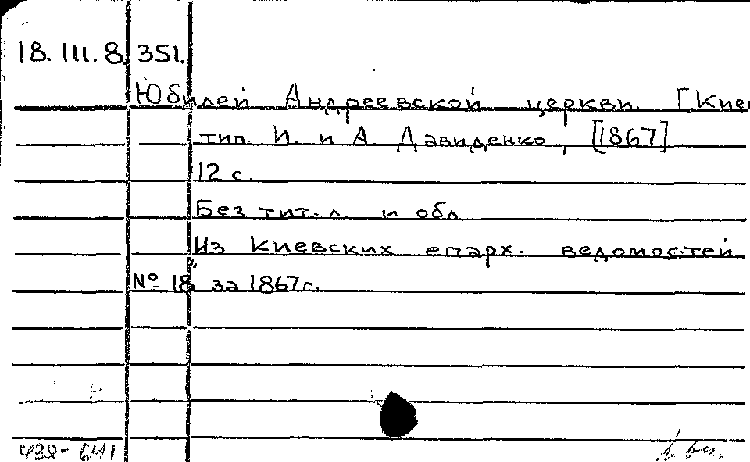 18.III.8.351.
Юбилей Андреевской церкви. [Кие
тип. И. и А. Давиденко, [1867]
12 с.
Без тит. л. и обл
Из Киевских епарх. ведомостей
№ 18, за 1867 г.